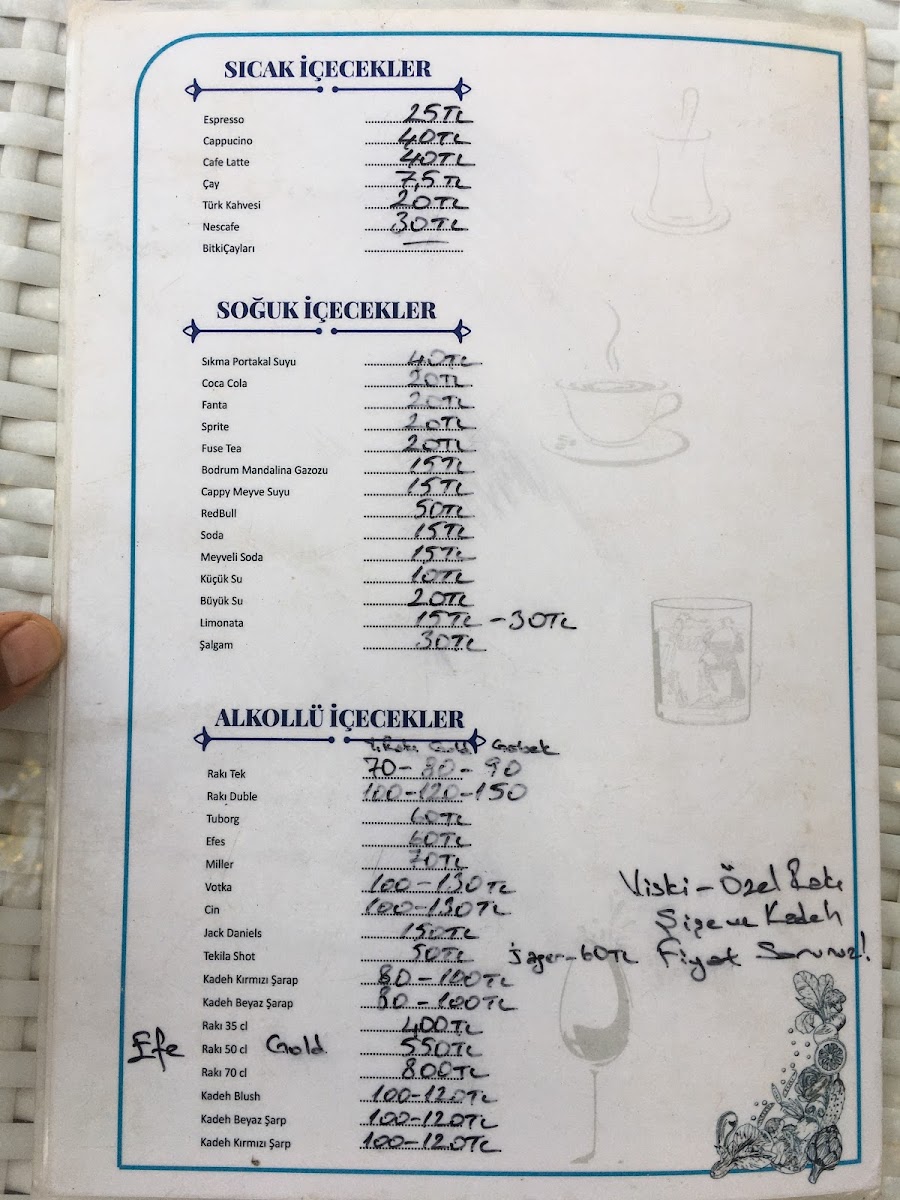 SICAK İÇECEKLER
Espresso 25TL
Cappucino 40TL
Cafe Latte 40TL
Çay 7,5TL
Türk Kahvesi 20TL
Nescafe 30TL
BitkiÇayları
SOĞUK İÇECEKLER
Sıkma Portakal Suyu 40TL
Coca Cola 20TL
Fanta 20TL
Sprite 20TL
Fuse Tea 20TL
Bodrum Mandalina Gazozu 15TL
Cappy Meyve Suyu 15TL
RedBull 50TL
Soda 15TL
Meyveli Soda 15TL
Küçük Su 10TL
Büyük Su 20TL
Limonata 15TL - 30TL
Şalgam 30TL
ALKOLLÜ İÇECEKLER
Gold Göbek
Rakı Tek 70 - 80 - 90
Rakı Duble 100-120-150
Tuborg 60TL
Efes 60TL
Miller 70TL
Votka 100-130TL
Viski - Özel Rakı
Cin 100-130TL
Şişe ve Kadeh
Jack Daniels 150TL
Tekila Shot 50TL Jager-60TL Fiyat Sorunuz!
Kadeh Kırmızı Şarap 80-100TL
Kadeh Beyaz Şarap 80-100TL
Rakı 35 cl 400TL
Efe Rakı 50 cl Gold 550TL
Rakı 70 cl 800TL
Kadeh Blush 100-120TL
Kadeh Beyaz Şarp 100-120TL
Kadeh Kırmızı Şarp 100-120TL